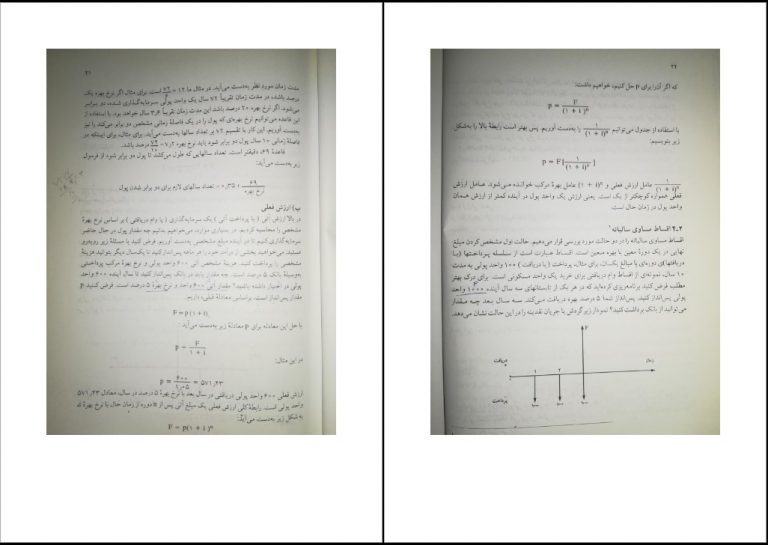 ۲۱
مدت زمان مورد نظر به‌دست می‌آید. در مثال ما ۱۲ = ۷۲/۶ است. برای مثال اگر نرخ بهره یک
درصد باشد، در مدت زمان تقریباً ۷۲ سال یک واحد پولی سرمایه‌گذاری شده، دو برابر
می‌شود. اگر نرخ بهره ۲۰ درصد باشد این مدت زمان تقریباً ۳٫۶ سال خواهد بود. با استفاده از
این قاعده می‌توانیم نرخ بهره‌ای که پول را در یک فاصلهٔ زمانی مشخص دو برابر می‌کند را نیز
به‌دست آوریم. این کار با تقسیم ۷۲ بر تعداد سالها به‌دست می‌آید. برای مثال، برای اینکه در
فاصلهٔ زمانی ۱۰ سال پول دو برابر شود باید نرخ بهره ۷٫۲ = ۷۲/۱۰ درصد باشد.
قاعدهٔ ۶۹، دقیقتر است. تعداد سالهایی که طول می‌کشد تا پول دو برابر شود از فرمول
زیر به‌دست می‌آید:
۶۹/نرخ بهره + ۰٫۳۵ = تعداد سالهای لازم برای دو برابر شدن پول
ب) ارزش فعلی
در بالا ارزش آتی (یا پرداخت آتی) یک سرمایه‌گذاری (یا وام دریافتی) بر اساس نرخ بهرهٔ
مشخص را محاسبه کردیم. در بسیاری موارد، می‌خواهیم بدانیم چه مقدار پول در حال حاضر
سرمایه‌گذاری کنیم تا در آینده مبلغ مشخصی به‌دست آوریم. فرض کنید با مسئلهٔ زیر روبه‌رو
هستید. می‌خواهید بخشی از درآمد خود را هر ماهه پس‌انداز کنید تا سال دیگر بتوانید هزینهٔ
مشخصی را پرداخت کنید. هزینهٔ مشخص آتی ۶۰۰ واحد پولی و نرخ بهرهٔ مرکب پرداختی
به‌وسیلهٔ بانک ۵ درصد است. چه مقدار باید در بانک پس‌انداز کنید تا سال آینده ۶۰۰ واحد
پولی در اختیار داشته باشید؟ مقدار آتی ۶۰۰ واحد و نرخ بهرهٔ ۵ درصد است. فرض کنید p
مقدار پس‌انداز است. براساس معادلهٔ قبلی، داریم:
F = p (۱ + i)
با حل این معادله برای p معادلهٔ زیر به‌دست می‌آید:
p = F/(۱ + i)
در این مثال:
p = ۶۰۰/۱٫۰۵ = ۵۷۱٫۴۳
ارزش فعلی ۶۰۰ واحد پولی دریافتی در سال بعد با نرخ بهرهٔ ۵ درصد در سال، معادل ۵۷۱٫۴۳
واحد پولی است. رابطهٔ کلی ارزش فعلی یک مبلغ آتی پس از n دوره از زمان حال با نرخ بهرهٔ i
به شکل زیر به‌دست می‌آید:
F = p(۱ + i)ⁿ
۲۲
که اگر آن‌را برای p حل کنیم، خواهیم داشت:
p = F/(۱ + i)ⁿ
با استفاده از جدول می‌توانیم ۱/(۱ + i)ⁿ را به‌دست آوریم. پس بهتر است رابطهٔ بالا را به‌شکل
زیر بنویسیم:
p = F[۱/(۱ + i)ⁿ]
۱/(۱ + i)ⁿ عامل ارزش فعلی و (۱ + i)ⁿ عامل بهرهٔ مرکب خوانده می‌شود. عامل ارزش
فعلی همواره کوچکتر از یک است. یعنی ارزش یک واحد پول در آینده کمتر از ارزش همان
واحد پول در زمان حال است.
۲ـ۴ اقساط مساوی سالیانه
اقساط مساوی سالیانه را در دو حالت مورد بررسی قرار می‌دهیم. حالت اول مشخص کردن مبلغ
نهایی در یک دورهٔ معین با بهره معین است. اقساط عبارت است از سلسله پرداختها (یا
دریافتهای) دوره‌ای با مبالغ یکسان. برای مثال، پرداخت (یا دریافت) ۱۰۰ واحد پولی به مدت
۱۰ سال، نمونه‌ای از اقساط وام دریافتی برای خرید یک واحد مسکونی است. برای درک بهتر
مطلب فرض کنید، برنامه‌ریزی کرده‌اید که در هر یک از تابستانهای سه سال آینده ۱۰۰۰ واحد
پولی پس‌انداز کنید. پس‌انداز شما ۵ درصد بهره دریافت می‌کند. سه سال بعد چه مقدار
می‌توانید از بانک برداشت کنید؟ نمودار زیر گردش یا جریان نقدینه را در این حالت نشان می‌دهد.
F
دریافت
۱ ۲
پرداخت